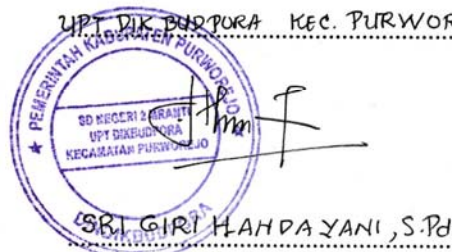 UPT DIK BUDPORA KEC. PURWOR
PEMERINTAH KABUPATEN PURWOREJO
SD NEGERI 2
UPT DIKBUDPORA
KECAMATAN PURWOREJO
SRI GIRI HANDAYANI, S.Pd